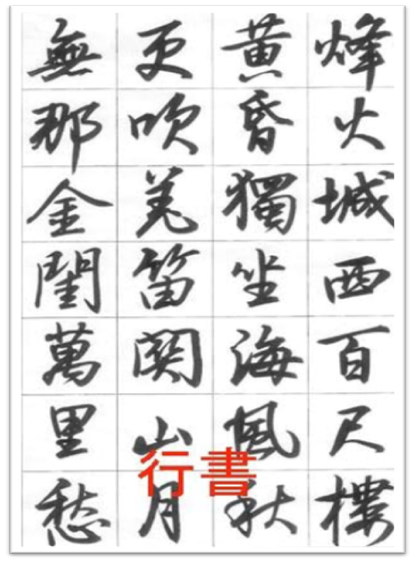 烽火城西百尺樓
黃昏獨坐海風秋
更吹羌笛關山月
無那金閨萬里愁
行書